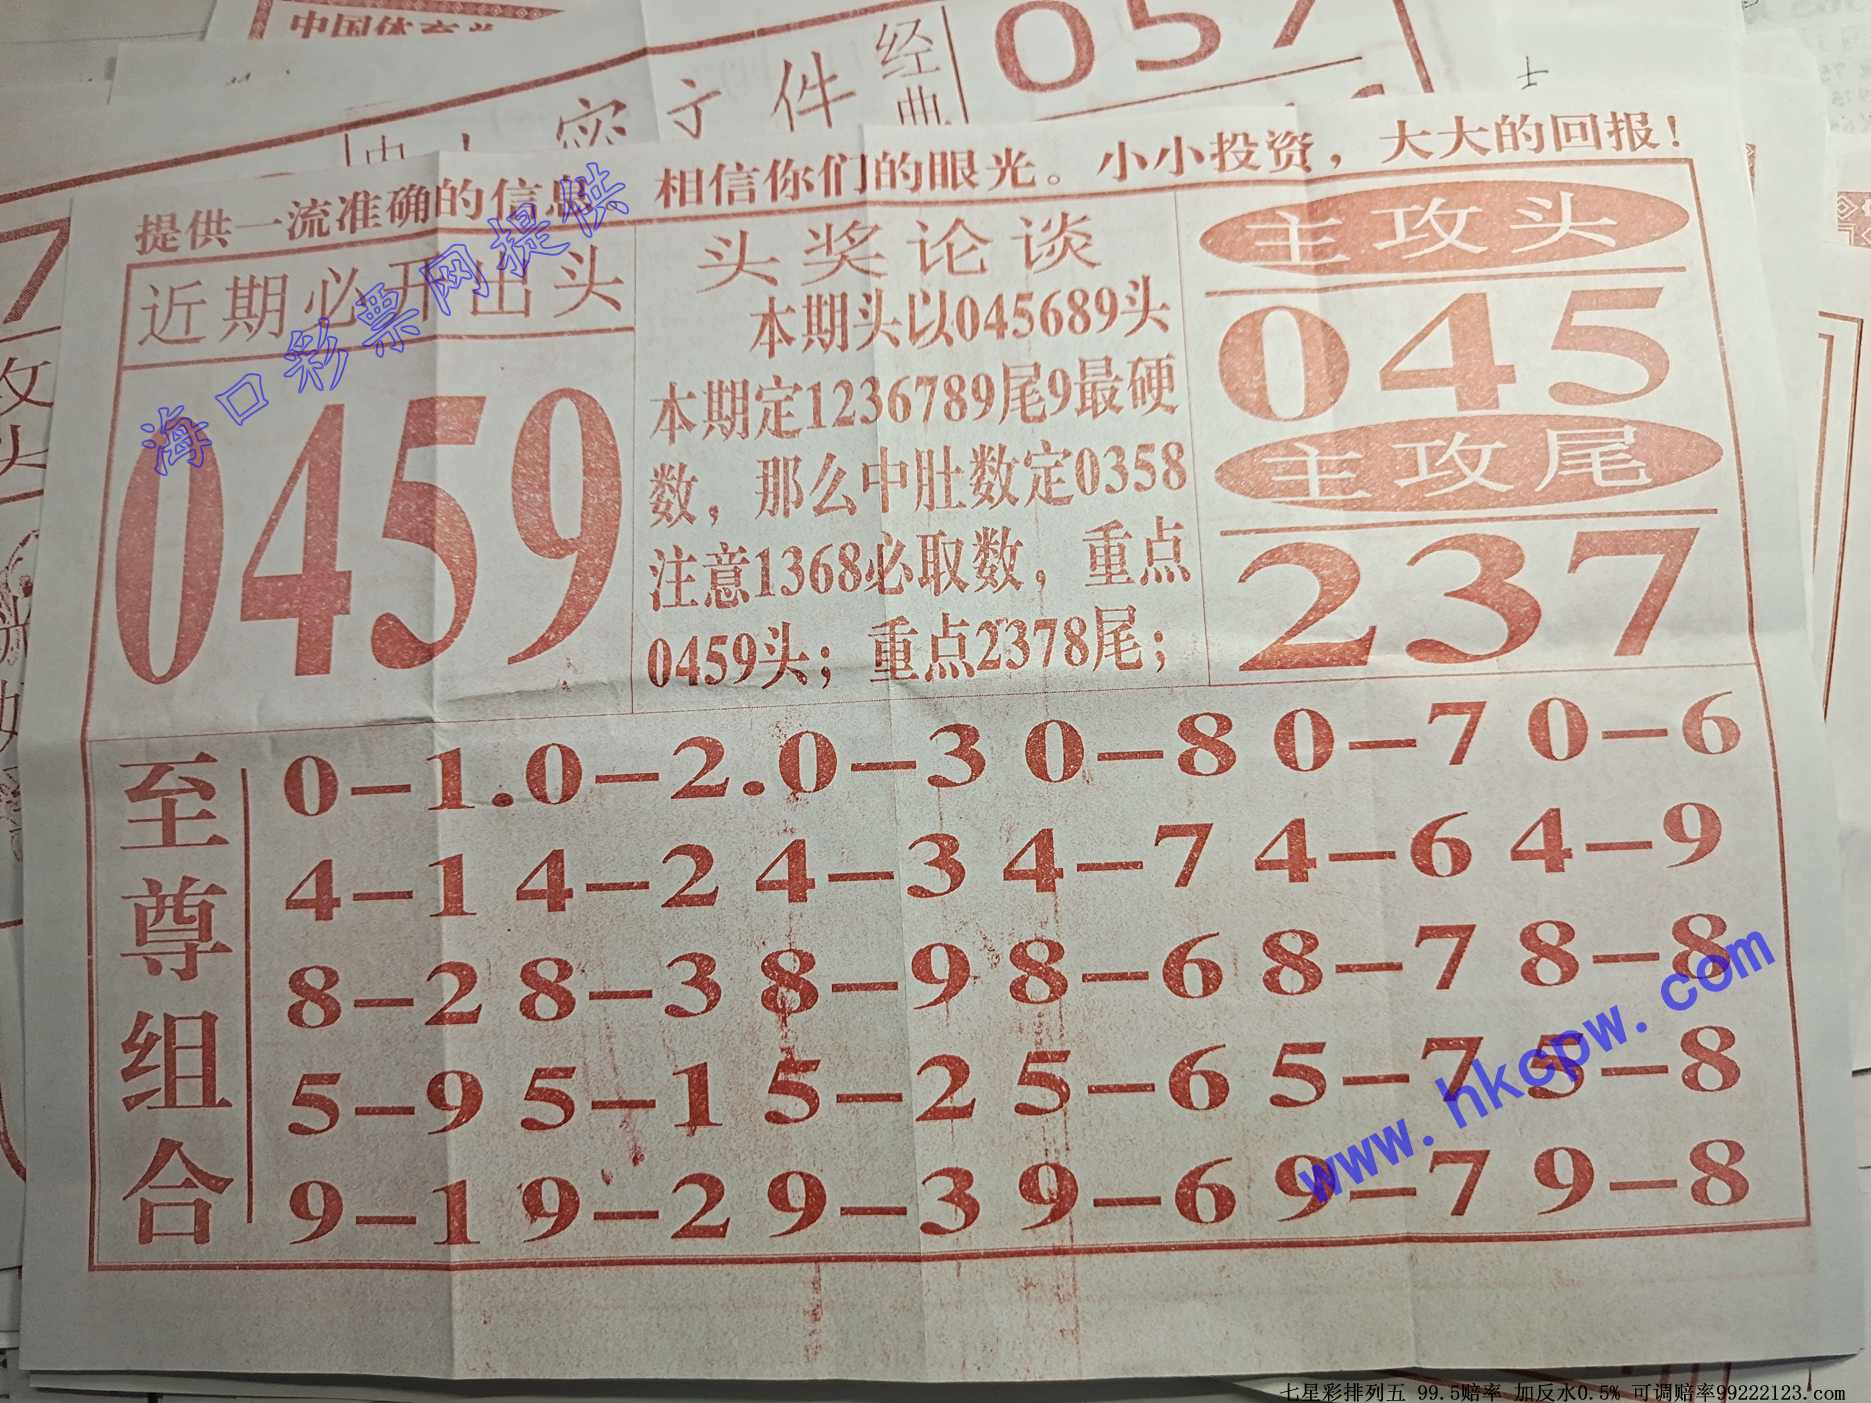 中国体育彩
经典
密 件
057
提供一流准确的信息 相信你们的眼光。小小投资，大大的回报！
近期必开出头
0459
头奖论谈
本期头以045689头
本期定1236789尾9最硬
数，那么中肚数定0358
注意1368必取数，重点
0459头；重点2378尾；
主攻头
045
主攻尾
237
至尊组合
0-1.0-2.0-3 0-8 0-7 0-6
4-1 4-2 4-3 4-7 4-6 4-9
8-2 8-3 8-9 8-6 8-7 8-8
5-9 5-1 5-2 5-6 5-7 5-8
9-1 9-2 9-3 9-6 9-7 9-8
海口彩票网提供
www.hkcpw.com
七星彩排列五 99.5赔率 加反水0.5% 可调赔率99222123.com